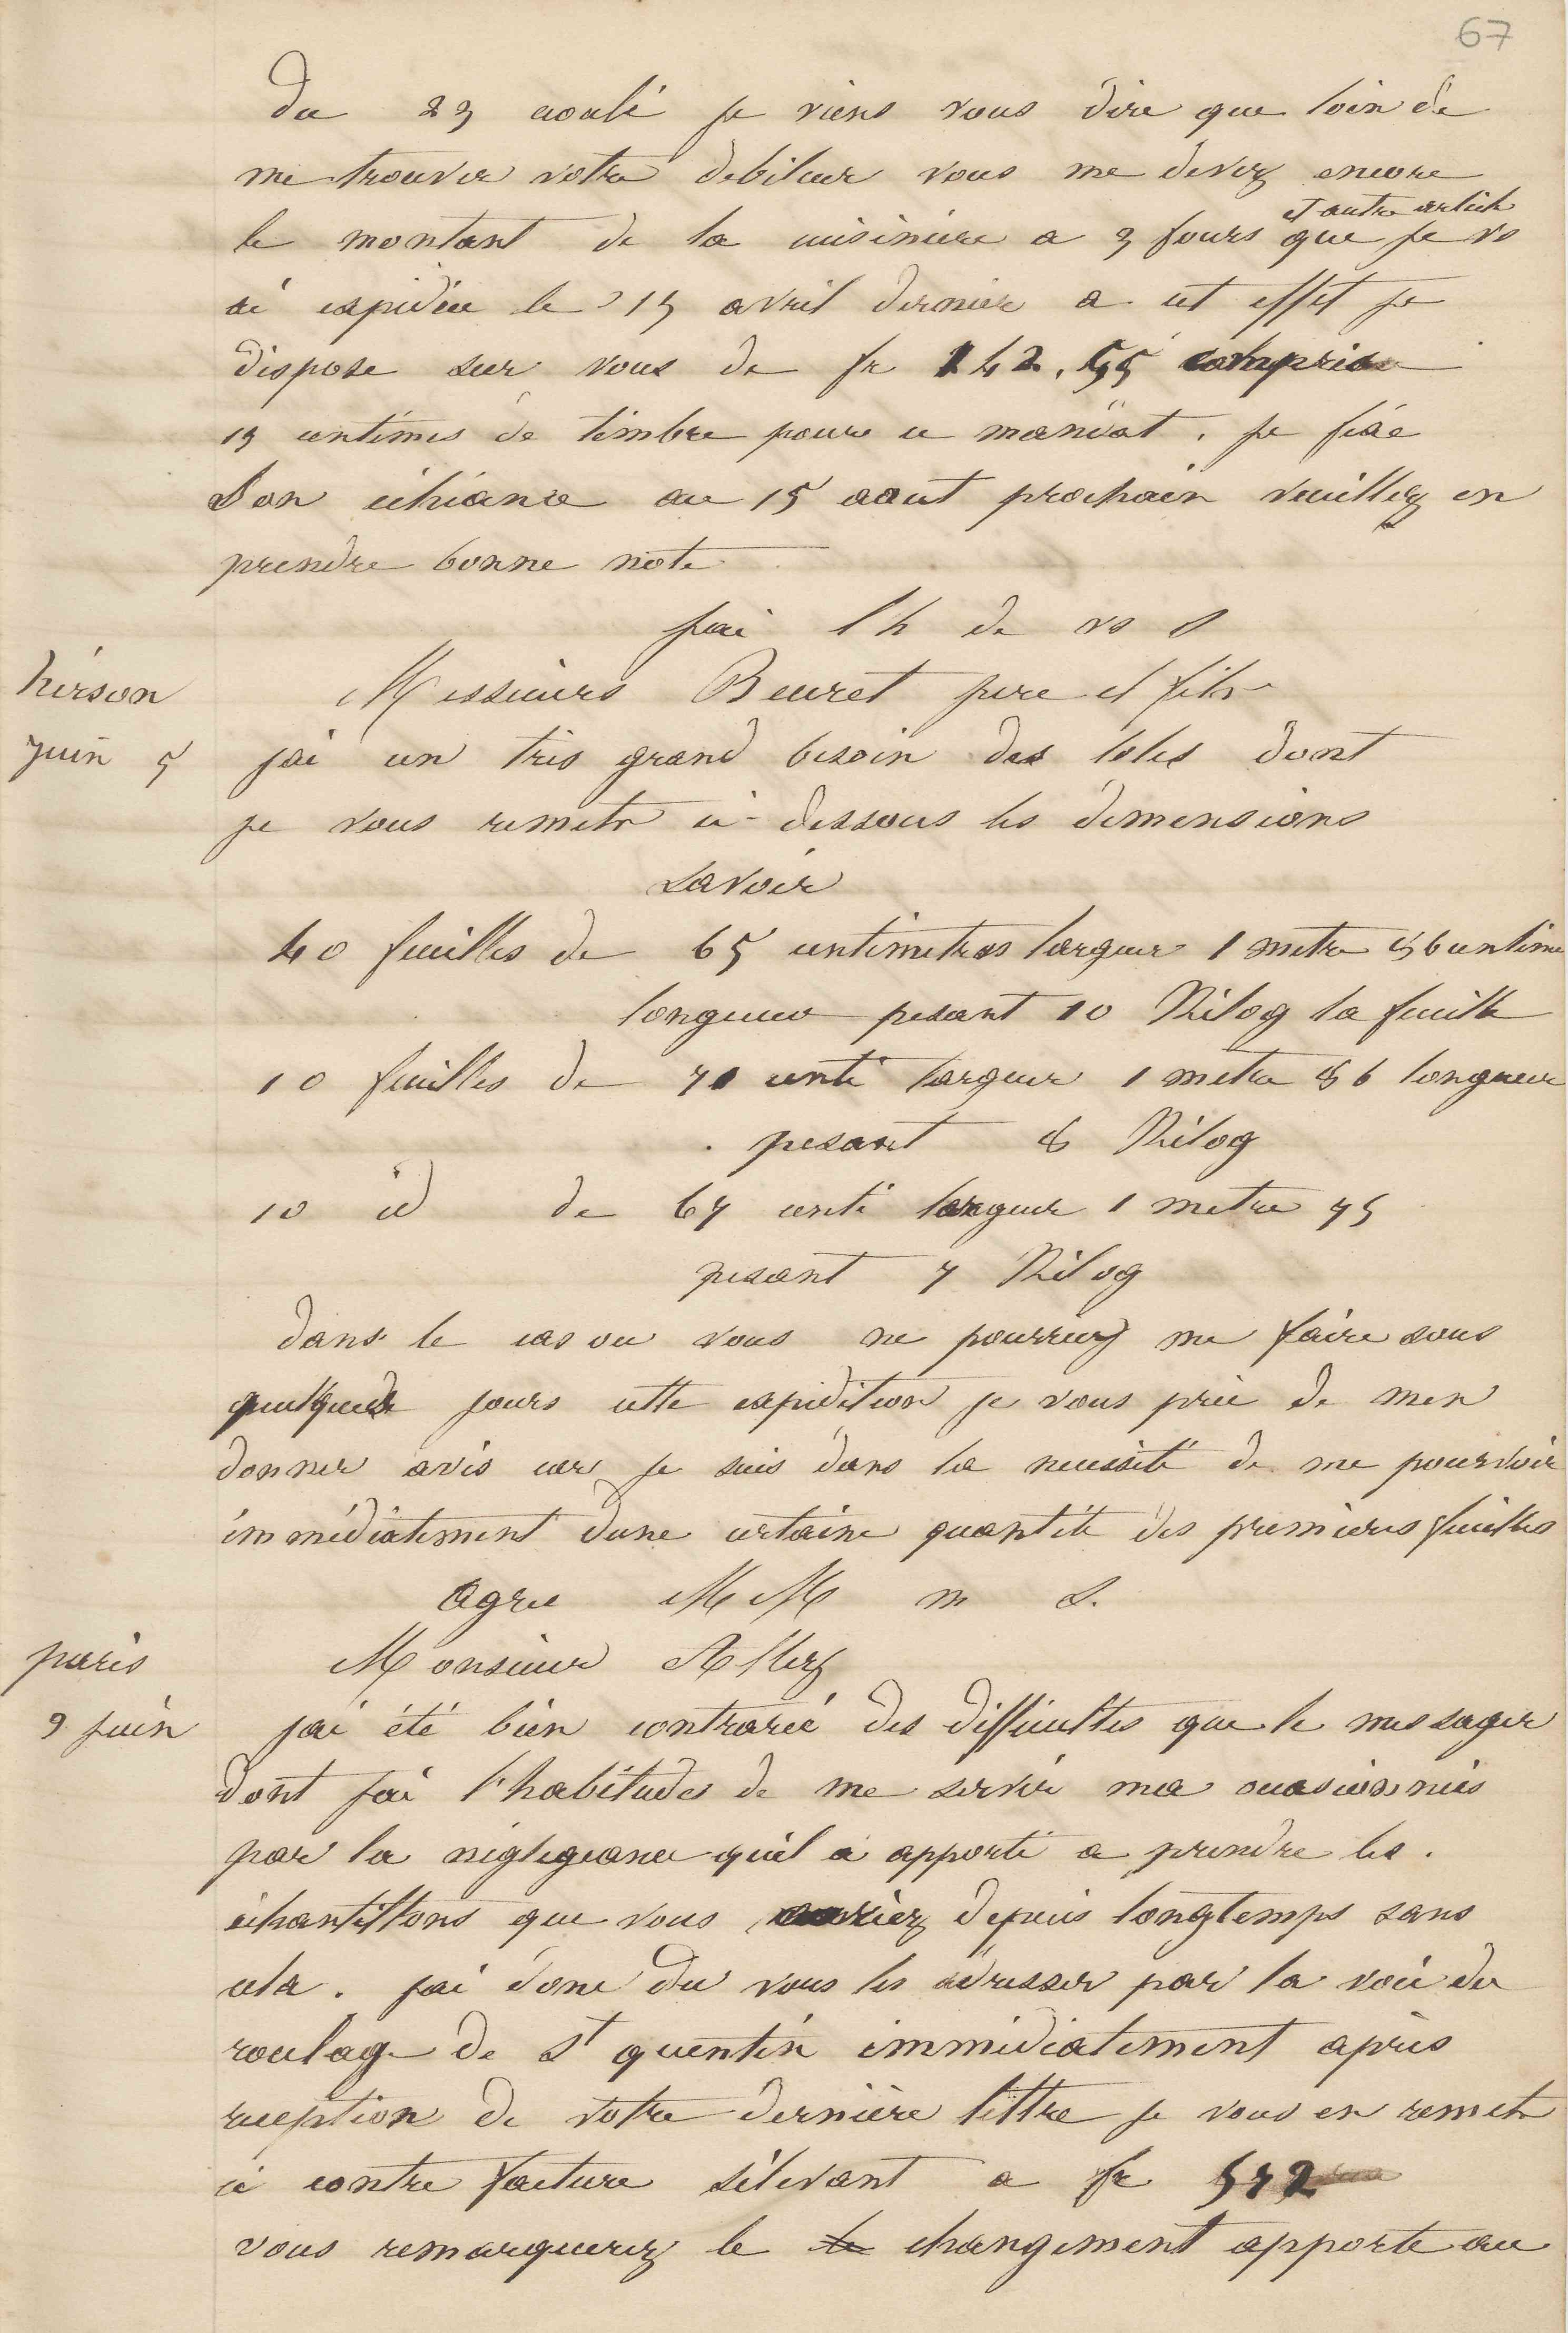 67
du 23 ecoulé je viens vous dire que loin de
me trouver votre debiteur vous me devez encore
et autre article
le montant de la cuisiniere a 3 fours que je vs
ai expediée le 15 avril dernier a cet effet je
dispose sur vous de fr 142.55 compris
15 centimes de timbre pour ce mandat. je fixe
Son echéance au 15 aout prochain veuillez en
prendre bonne note
jai l h de vs S
hirson Messieurs Beuret pere et fils
juin 5 jai un tris grand besoin des toles dont
je vous remets ci-dessous les dimensions
savoir
40 feuilles de 65 centimetres largeur 1 metre 86 centime
longueur pesant 10 Kilog la feuille
10 feuilles de 71 centi largeur 1 metre 86 longueur
pesant 8 Kilog
10 id de 67 centi largeur 1 metre 75
pesant 7 Kilog
dans le cas ou vous ne pourriez me faire sous
quelques jours cette expédition je vous prie de men
donner avis car je suis dans la necessité de me pourvoir
immédiatement dune certaine quantité des premieres feuilles
agree MM m S.
paris Monsieur Allez
9 juin jai été bien contrarié des difficultes que le messager
dont jai l'habitudes de me servir ma occasionnés
par la négligeance quil a apporté a prendre les.
échantillons que vous auriez depuis longtemps sans
cela. jai donc du vous les adresser par la voie du
roulage de St quentin immédiatement après
reception de votre dernière lettre je vous en remets
ci contre facture sélevant a fr 572
vous remarquerez le le changement apporte au